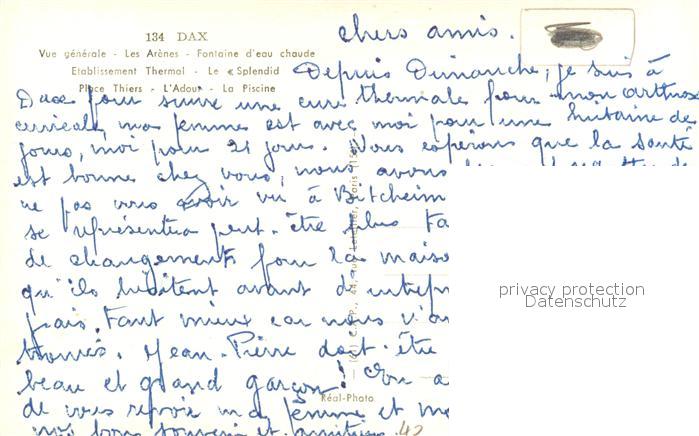 134 DAX
Vue générale - Les Arènes - Fontaine d'eau chaude
Etablissement Thermal - Le « Splendid
Place Thiers - L'Adour - La Piscine
chers amis.
Depuis Dimanche, je suis à
Dax pour suivre une cure thermale pour mon arthrose
cervicale, ma femme est avec moi pour une huitaine de
jours, moi pour 21 jours. Nous espérons que la santé
est bonne chez vous, nous avons
ne pas vous avoir vu à Bitcheim
se représentera peut-être plus ta
de changements pour la maiso
qu'ils hésitent avant d'entrepr
frais. Tant mieux car nous
Jean-Pierre doit être
beau et grand garçon! On a
de vous revoir ma femme et m
nos bons souvenirs et amitiés. 40
Réal-Photo
privacy protection
Datenschutz